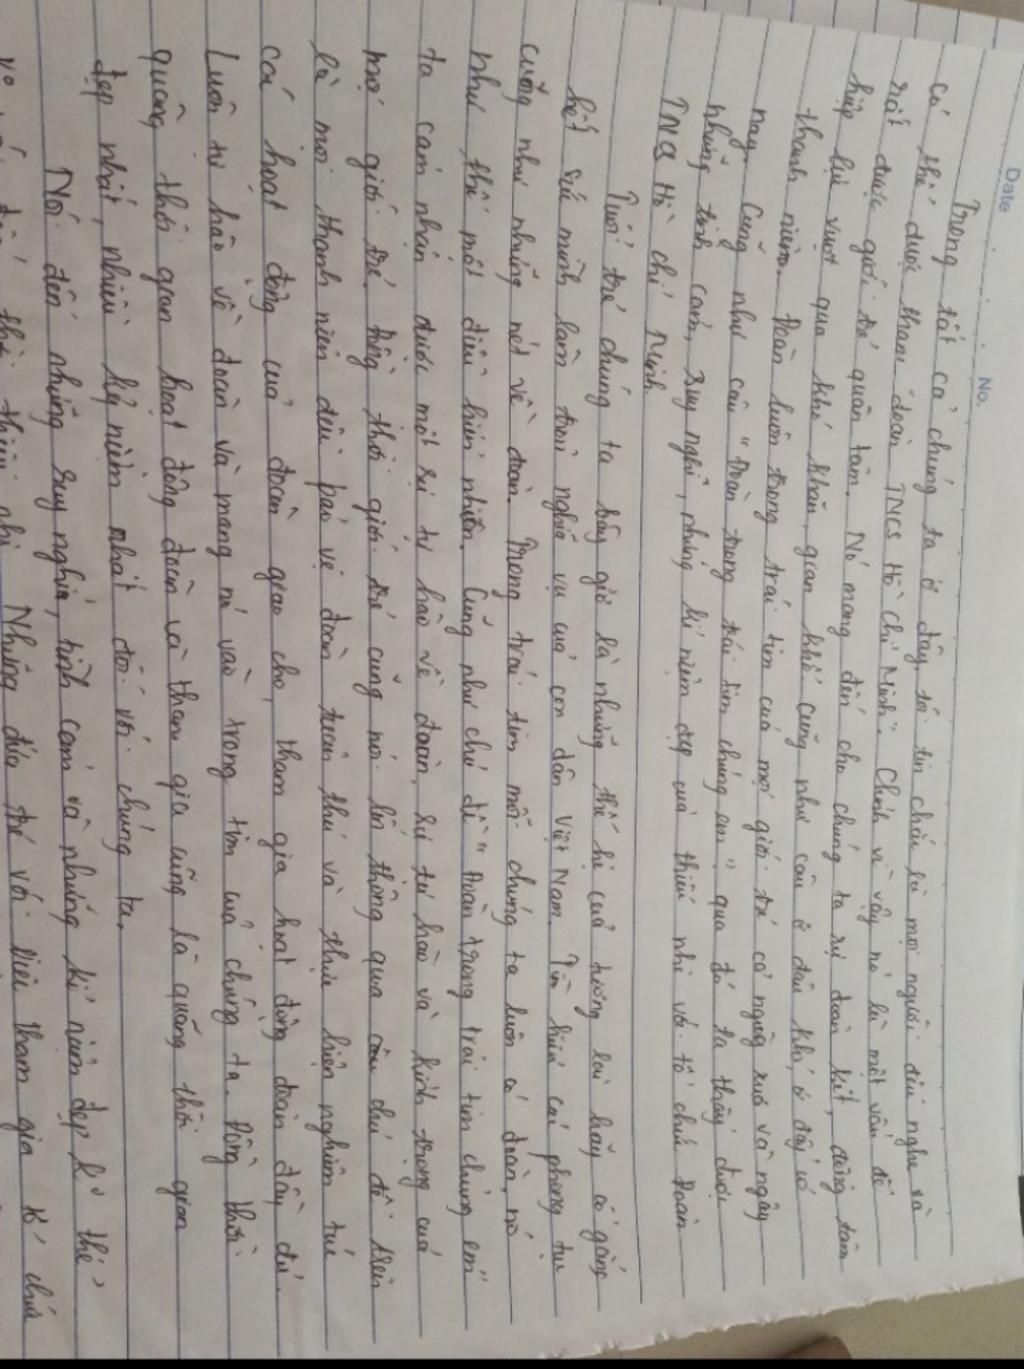 Date
No.
Trong tất cả chúng ta ở đây, tôi tin chắc là mọi người đều nghe và
có thể được tham đoàn TNCS Hồ Chí Minh. Chính vì vậy nó là một vấn đề
rất được giới trẻ quan tâm. Nó mang đến cho chúng ta sự đoàn kết, đồng tâm
hiệp lực vượt qua khó khăn, gian khổ cũng như câu ở đâu khó, ở đấy có
thanh niên. Đoàn luôn trong trái tim của mọi giới trẻ cả ngày xưa và ngày
nay. Cũng như câu "Đoàn trong trái tim chúng em" qua đó ta thấy được
những tình cảm, suy nghĩ, những kỉ niệm đẹp của thiếu nhi với tổ chức Đoàn
TNCS Hồ Chí Minh.
Tuổi trẻ chúng ta bây giờ là những thế hệ của tương lai hãy cố gắng
hết sức mình làm tròn nghĩa vụ của con dân Việt Nam. Tìm hiểu các phong tục
cũng như những nét về đoàn. Trong trái tim mỗi chúng ta luôn có đoàn, nó
như thể một điều hiển nhiên. Cũng như chủ đề "Đoàn trong trái tim chúng em"
ta cảm nhận được một sự tự hào về đoàn, sự tự hào và kính trọng của
mọi giới trẻ. Đồng thời giới trẻ cũng nói lên thông qua câu chủ đề trên
là mọi thanh niên đều bảo vệ đoàn tuân thủ và thực hiện nghiêm túc
các hoạt động của đoàn giao cho, tham gia hoạt động đoàn đầy đủ.
Luôn tự hào về đoàn và mang nó vào trong tim của chúng ta. Đồng thời
quãng thời gian hoạt động đoàn và tham gia cũng là quãng thời gian
đẹp nhất, nhiều kỷ niệm nhất đối với chúng ta.
Nói đến những suy nghĩ, tình cảm và những kỉ niệm đẹp kể
Những đứa trẻ với tham gia tổ chức